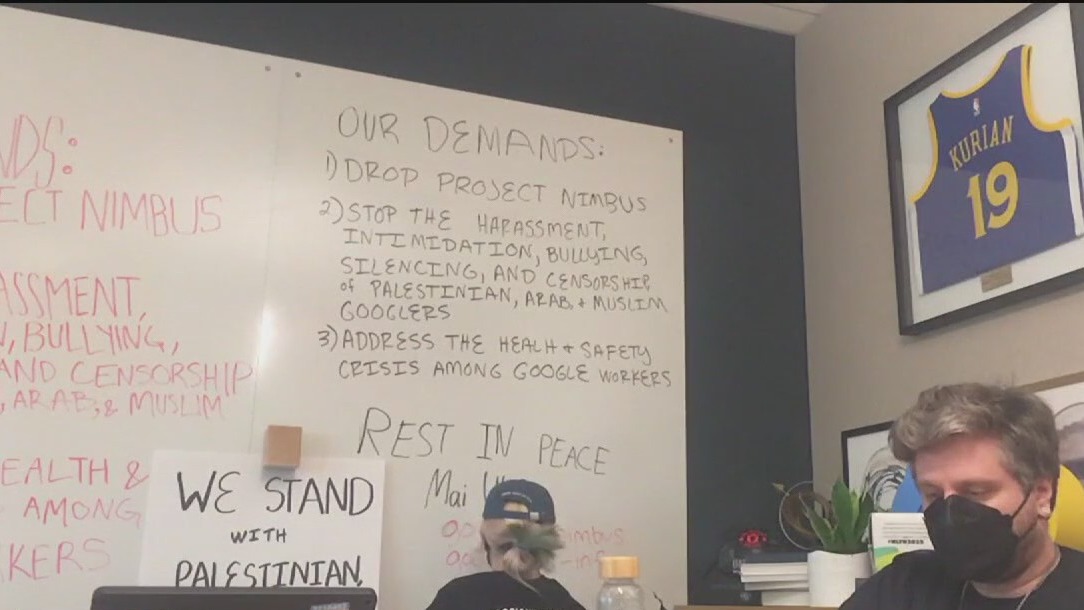 NDS:
ECT NIMBUS
ASSMENT,
N, BULLYING,
AND CENSORSHIP
, ARAB, & MUSLIM
EALTH &
AMONG
KERS
OUR DEMANDS:
1) DROP PROJECT NIMBUS
2) STOP THE HARASSMENT,
INTIMIDATION, BULLYING,
SILENCING, AND CENSORSHIP
of PALESTINIAN, ARAB, + MUSLIM
GOOGLERS
3) ADDRESS THE HEALH + SAFETY
CRISIS AMONG GOOGLE WORKERS
REST IN PEACE
Mai
Nimbus
WE STAND
WITH
PALESTINIAN,
KURIAN
19